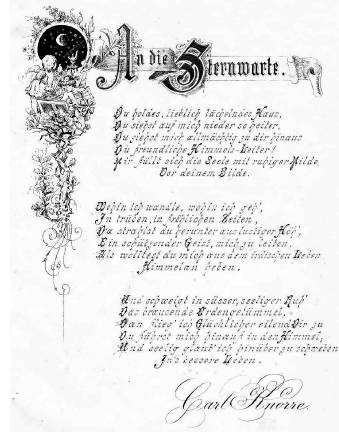 An die Sternwarte.
Du holdes, lieblich lächelndes Haus,
Du siehst auf mich nieder so heiter,
Du ziehst mich allmächtig zu dir hinaus
Du freundliche Himmels-Leiter!
Mir füllt sich die Seele mit ruhiger Milde
Vor deinem Bilde.
Wohin ich wandle, wohin ich geh',
In trüben, in fröhlichen Zeiten,
Da strahlst du herunter aus luftiger Höh',
Ein schützender Geist, mich zu leiten,
Als wolltest du mich aus dem irdischen Leben
Himmelan heben.
Und schweigt in süsser, seeliger Ruh'
Das brausende Erdengetümmel,
Dan flieg' ich Glücklicher eilend Dir zu
Du führst mich hinauf in den Himmel,
Und seelig glaub' ich hinüber zu schweben
In's bessere Leben.
Carl Knorre.